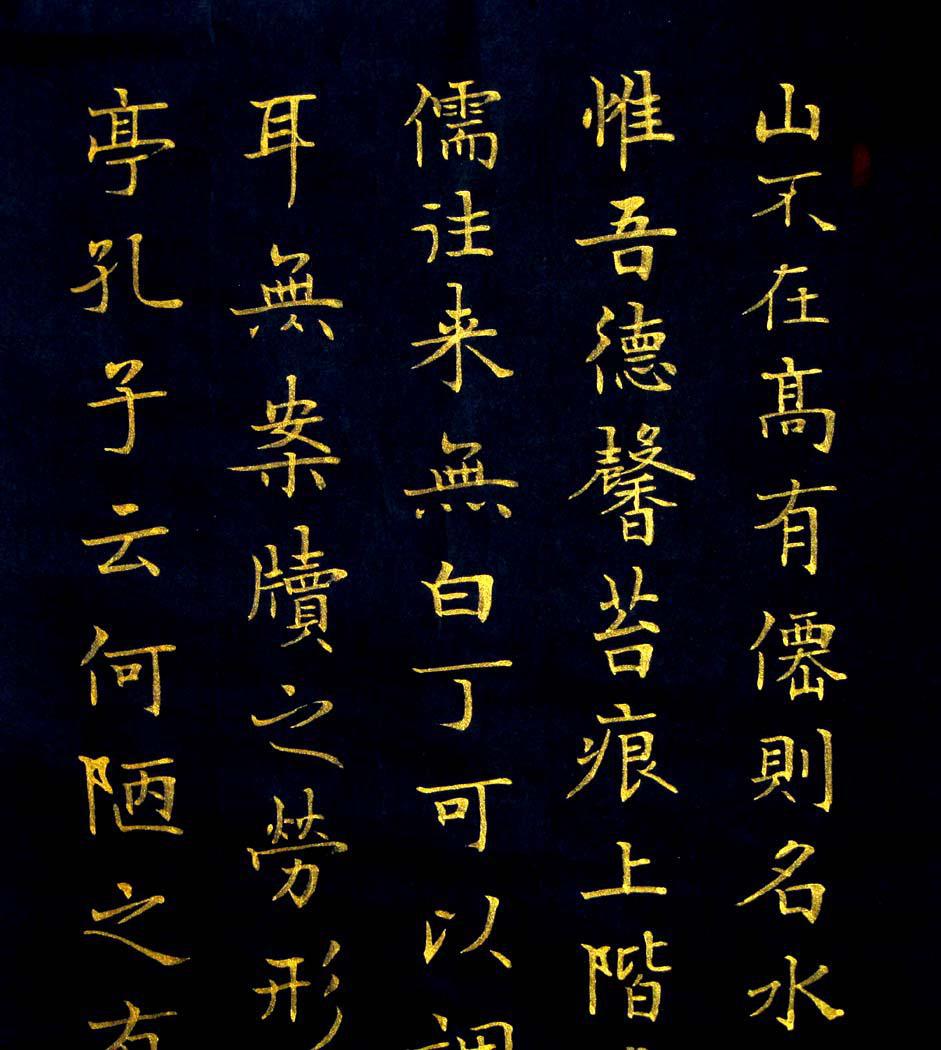 山不在髙有僊則名水
惟吾德馨苔痕上階
儒往来無白丁可以調
耳無案牘之勞形
亭孔子云何陋之有